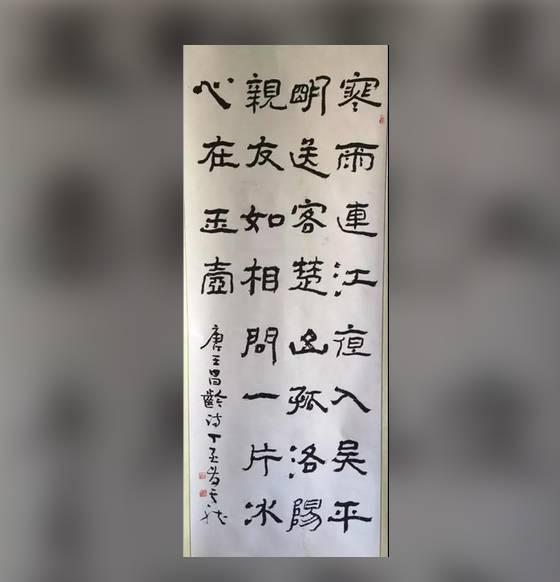 寒雨連江夜入吳平
明送客楚山孤洛陽
親友如相問一片冰
心在玉壺
唐王昌齡詩丁